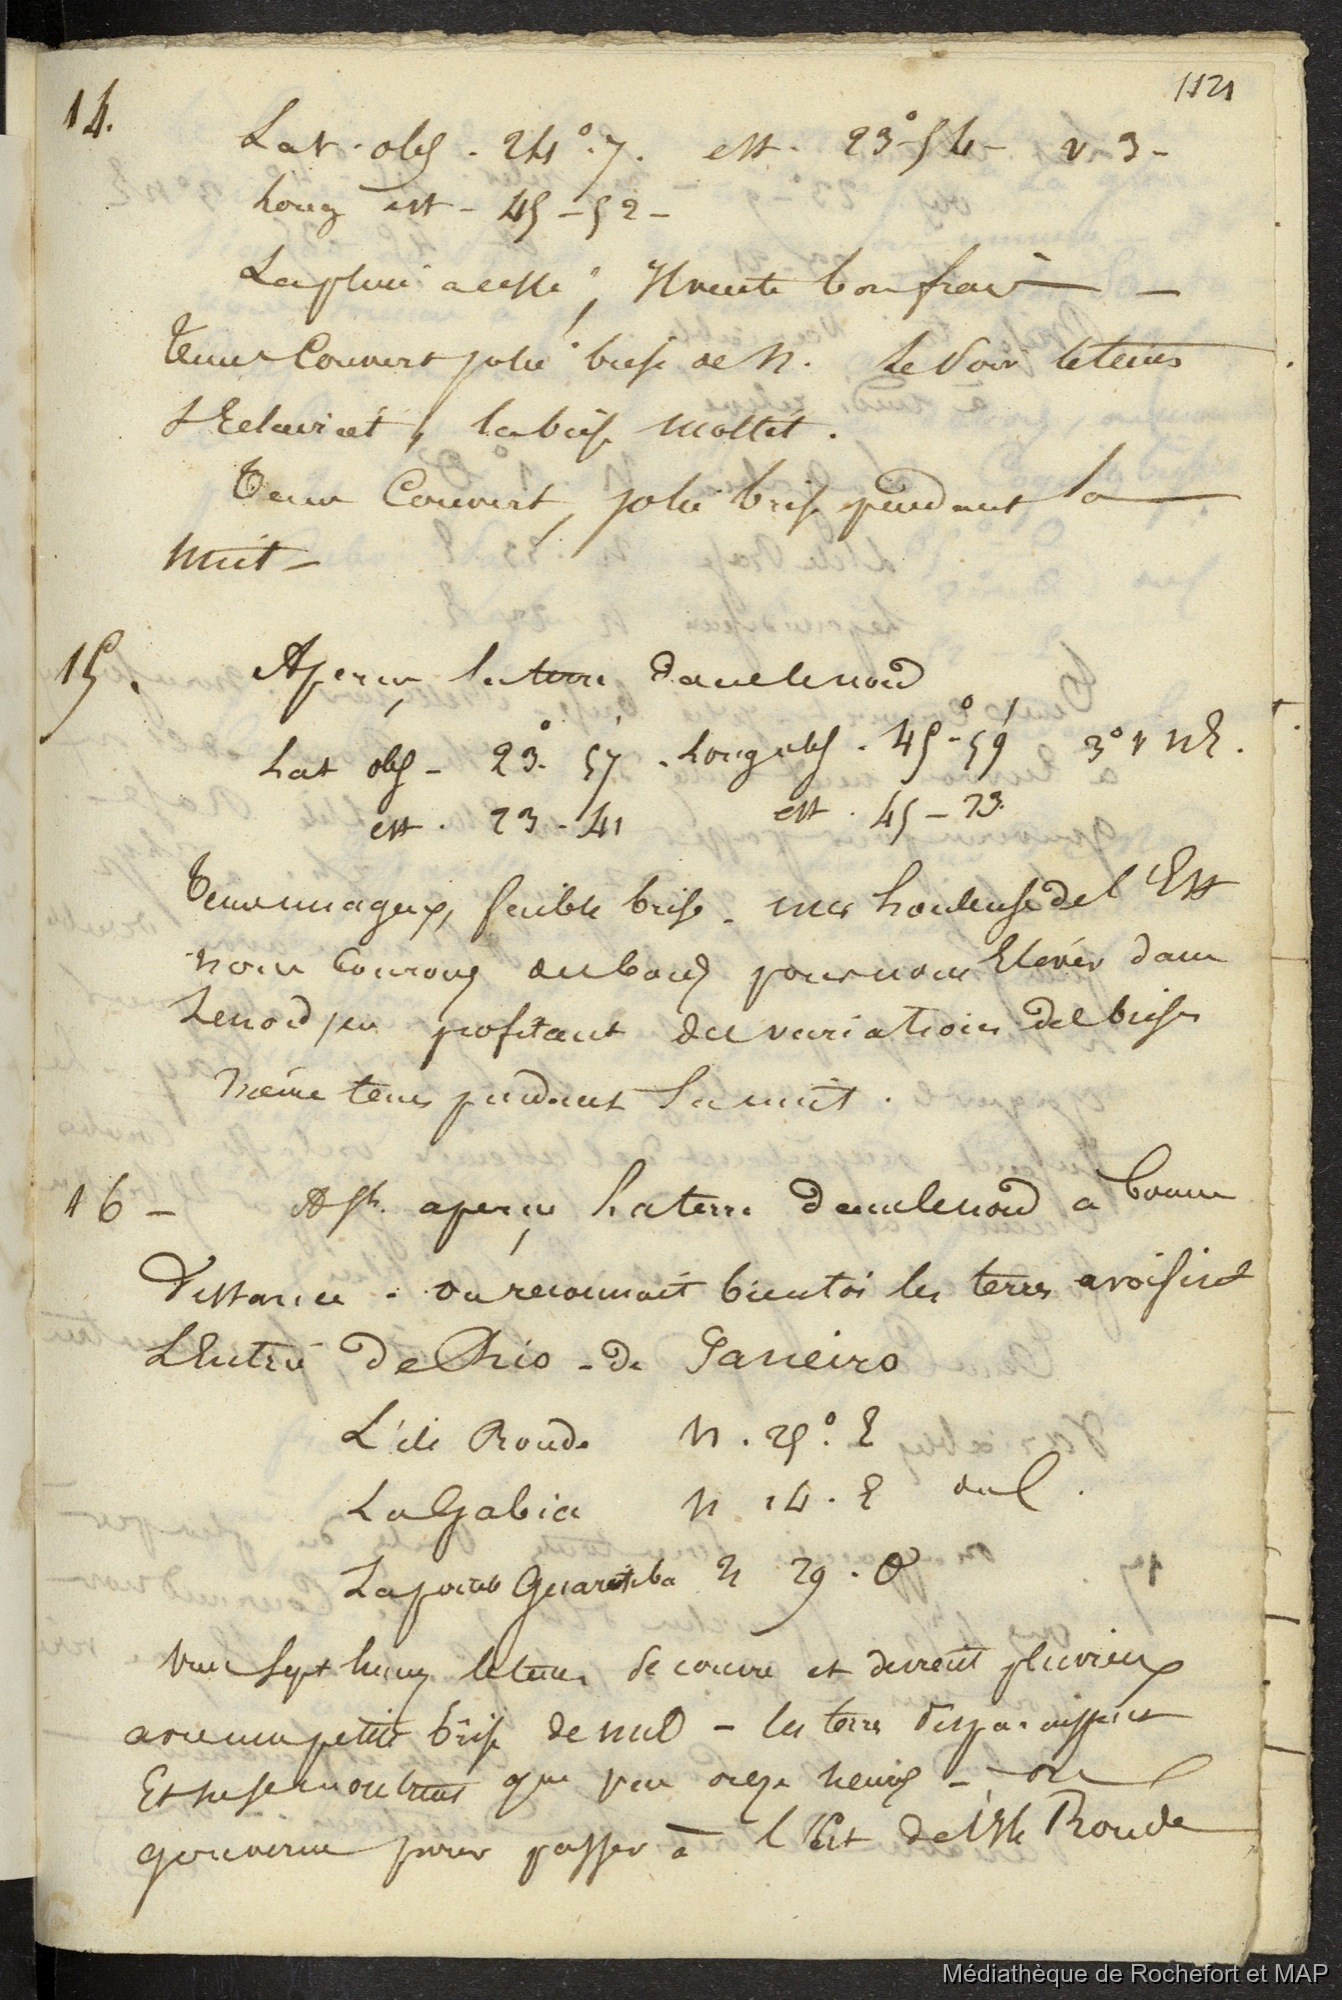 1121
14. Lat. obs. 24°.7. est. 23°-54- v 3-
Long est - 45-52-
La pluie a cessé, Il vente bon frais -
Tems Couvert jolie brise de N. Le Soir le tems
S'Eclaircit, la brise mollit.
Tems Couvert, jolie brise pendant la
nuit -
15. Aperçu la terre dans le nord
Lat obs - 23°. 57'. Long obs. 45°-59' 3° v NE.
est. 23-41 est. 45-23.
Tems nuageux, faible brise. mer houleuse de l'Est
nous Courons des bords pour nous Elever dans
Le nord en profitant des variations de brise
Même tems pendant la nuit.
16 - A 5h. aperçu la terre dans le nord a bonne
Distance. on reconnait bientôt les terres avoisint
L'Entrée de Rio-de Janeiro
L'ile Ronde N. 25°. E
La Gabia N 14. E du C.
La pointe Guaratiba N 29. O
Vers Sept heures le tems se couvre et devient pluvieux
avec une petite brise de - les terres disparaissent
Et ne se montrent que vers onze heures - on
gouverne pour passer à l'Est de l'Isle Ronde
Médiathèque de Rochefort et MAP